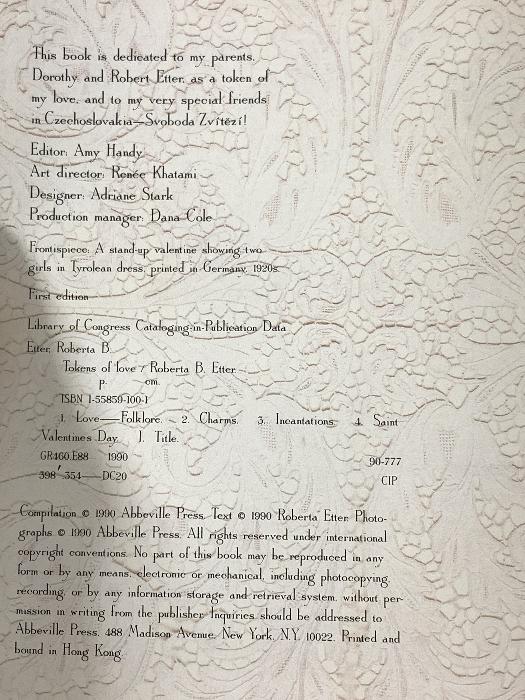 This book is dedicated to my parents,
Dorothy and Robert Etter, as a token of
my love, and to my very special friends
in Czechoslovakia—Svoboda Zvítězí!
Editor: Amy Handy
Art director: Renée Khatami
Designer: Adriane Stark
Production manager: Dana Cole
Frontispiece: A stand-up valentine showing two
girls in Tyrolean dress, printed in Germany, 1920s.
First edition
Library of Congress Cataloging-in-Publication Data
Etter, Roberta B.
Tokens of love / Roberta B. Etter.
p. cm.
ISBN 1-55859-100-1
1. Love—Folklore. 2. Charms. 3. Incantations. 4. Saint
Valentines Day. I. Title.
GR460.E88 1990
398'.354—DC20
90-777
CIP
Compilation © 1990 Abbeville Press. Text © 1990 Roberta Etter. Photo-
graphs © 1990 Abbeville Press. All rights reserved under international
copyright conventions. No part of this book may be reproduced in any
form or by any means, electronic or mechanical, including photocopying,
recording, or by any information storage and retrieval system, without per-
mission in writing from the publisher. Inquiries should be addressed to
Abbeville Press, 488 Madison Avenue, New York, N.Y. 10022. Printed and
bound in Hong Kong.